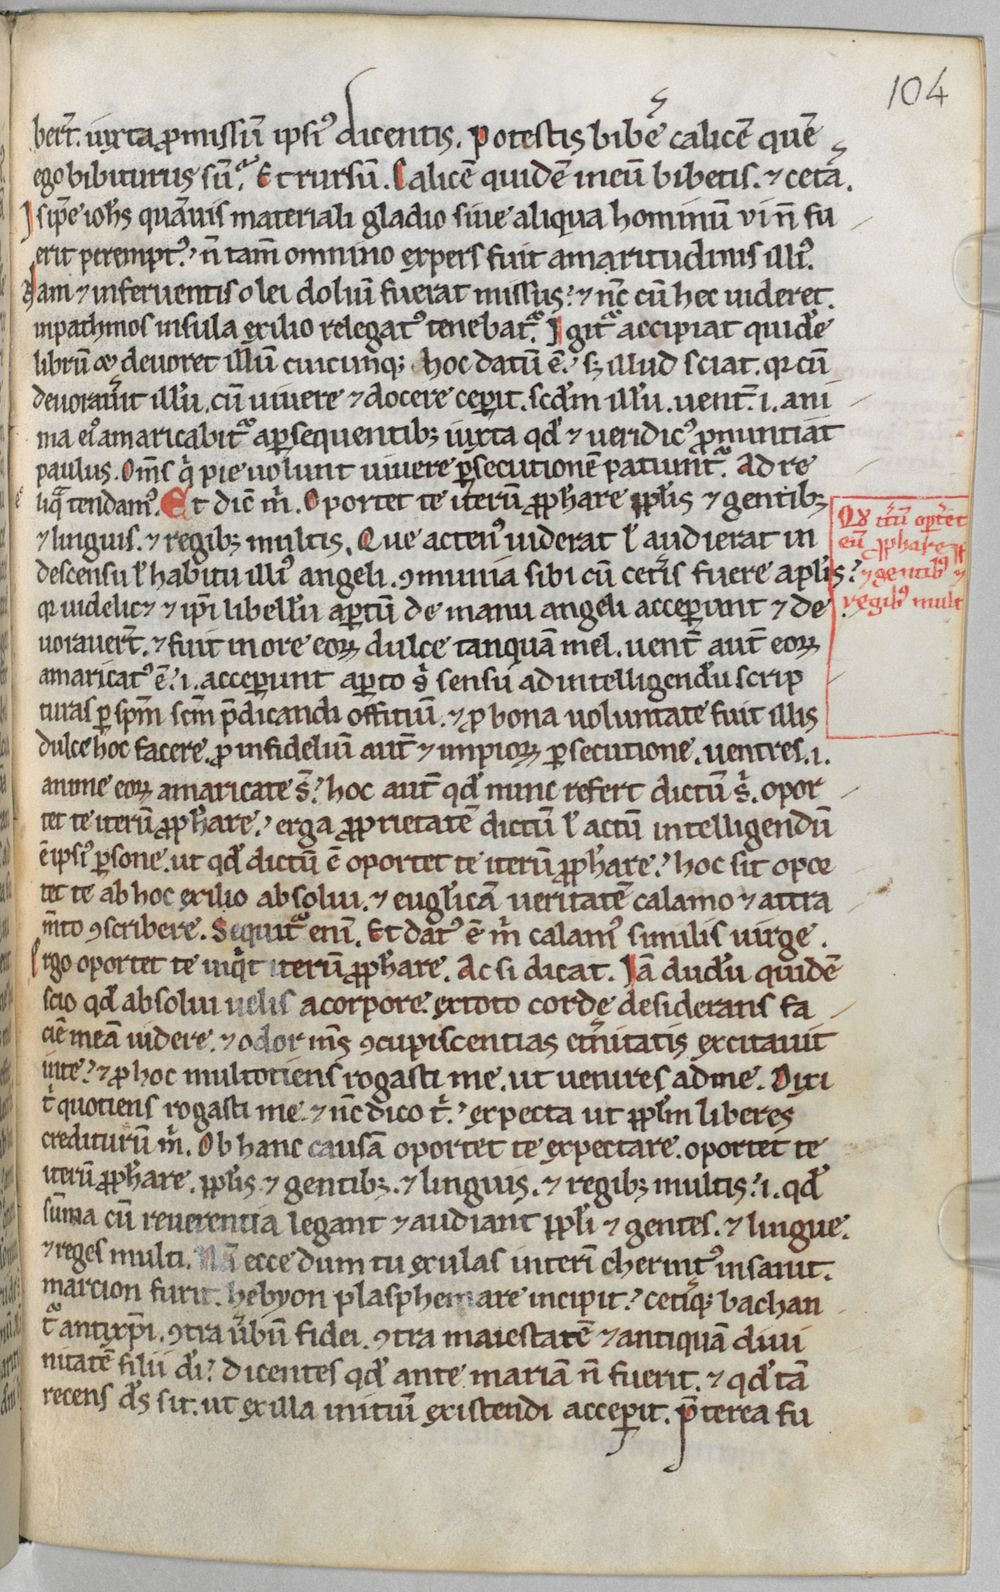 104
bert̄. iuxta ꝓmissiū ipsiꝰ dicentis. Potestis bibe᷑ calicē quē
ego bibiturus sū? Et rursū. Calicē quidē meū bibetis. ⁊ cetā.
Ipse ioh̄s quāuis materiali gladio siue aliqua hominū ui n̄ fu
erit perēptꝰ. n̄ tam̄ omnino expers fuit amaritudinis illiꝰ.
Nam ⁊ in feruentis olei doliū fuerat missus. ⁊ nc̄ cū hec uideret.
inpathmos insula exilio relegatꝰ tenebatᷣ. Igitᷣ accipiat quidē
librū ⁊ deuoret illū cuicūqꝫ hoc datū ē. sꝫ illud sciat. qꝛ cū
deuorauit̓ illū. cū uiuere ⁊ docere ceꝑit. scd̄m illū. uent̄. i. ani
ma eiꝰ amaricabitᷣ a ꝑsequentibꝫ iuxta qd̄ ⁊ ueridicꝰ ꝓnuntiat
paulus. Om̄s qͥ pie uolunt uiuere ꝑsecutionē patiuntᷣ. Ad re
liq̄ tendamꝰ. Et dic̄ m̄. Oportet te iterū ꝓph̄are ppl̄is ⁊ gentibꝫ
⁊ linguis. ⁊ regibꝫ multis. Que actenꝰ uiderat ł audierat in
descensu ł habitu illiꝰ angeli. ꝯmunia sibi cū cet̓is fuere apl̄is.
qꝛ uidelicꝫ ⁊ ip̄i libellū aꝑtū de manu angeli acceꝑunt ⁊ de
uorauert̄. ⁊ fuit in ore eoꝝ dulce tanquā mel. uent̄ aut̄ eoꝝ
amaricatꝰ ē. i. acceꝑunt aꝑto s̄ sensu ad intelligendū scrip
turas ꝑ sp̄m sc̄m p̄dicandi offitiū. ⁊ ꝓ bona uoluntate fuit illis
dulce hoc facere. ꝓ infideliū aut̄ ⁊ impioꝝ ꝑsecutione. uentres. i.
anime eoꝝ amaricate s̄. hoc aut̄ qd̄ nunc refert dictū s̄. opor
tet te iterū ꝓph̄are. erga ꝓprietatē dictū ł actū intelligendū
ē ipsiꝰ ꝑsone. ut qd̄ dictū ē oportet te iterū ꝓph̄are. hoc sit opor
tet te ab hoc exilio absolui. ⁊ eugl̄icā ueritatē calamo ⁊ attra
m̄to ꝯscribere. Sequitᷣ enī. Et datꝰ ē m̄ calamꝰ similis uirge.
Ergo oportet te inqͥt iterū ꝓph̄are. Ac si dicat. Iā dudū quidē
scio qd̄ absolui uelis a corpore. ex toto corde desiderans fa
ciē meā uidere. ⁊ odor m̄s ꝯcupiscentias et̓nitatis excitauit
in te. ⁊ ꝓ hoc multotiens rogasti me. ut uenires ad me. Dixi
t̄ quotiens rogasti me. ⁊ nc̄ dico t̄. expecta ut ppl̄m liberes
crediturū m̄. Ob hanc causā oportet te expectare. oportet te
iterū ꝓph̄are. ppl̄is ⁊ gentibꝫ. ⁊ linguis. ⁊ regibꝫ multis. i. qd̄
sūma cū reuerentia legant ⁊ audiant ppl̄i ⁊ gentes. ⁊ lingue.
⁊ reges multi. Nā ecce dum tu exulas interī cherintꝰ insanit.
marcion furit. hebyon plasphemare incipit. cet̓iqꝫ bachan
tᷣ antixp̄i. ꝯtra u̓bū fidei. ꝯtra maiestatē ⁊ antiquā diui
nitatē filii dī. dicentes qd̄ ante mariā n̄ fuerit. ⁊ qd̄ tā
recens ds̄ sit. ut ex illa initiū existendi acceꝑit. p̄terea fu
Qd̄ it̓ū oport̄et
eū ꝓphare pp̄
⁊ gentibꝰ ⁊
regibꝰ mult